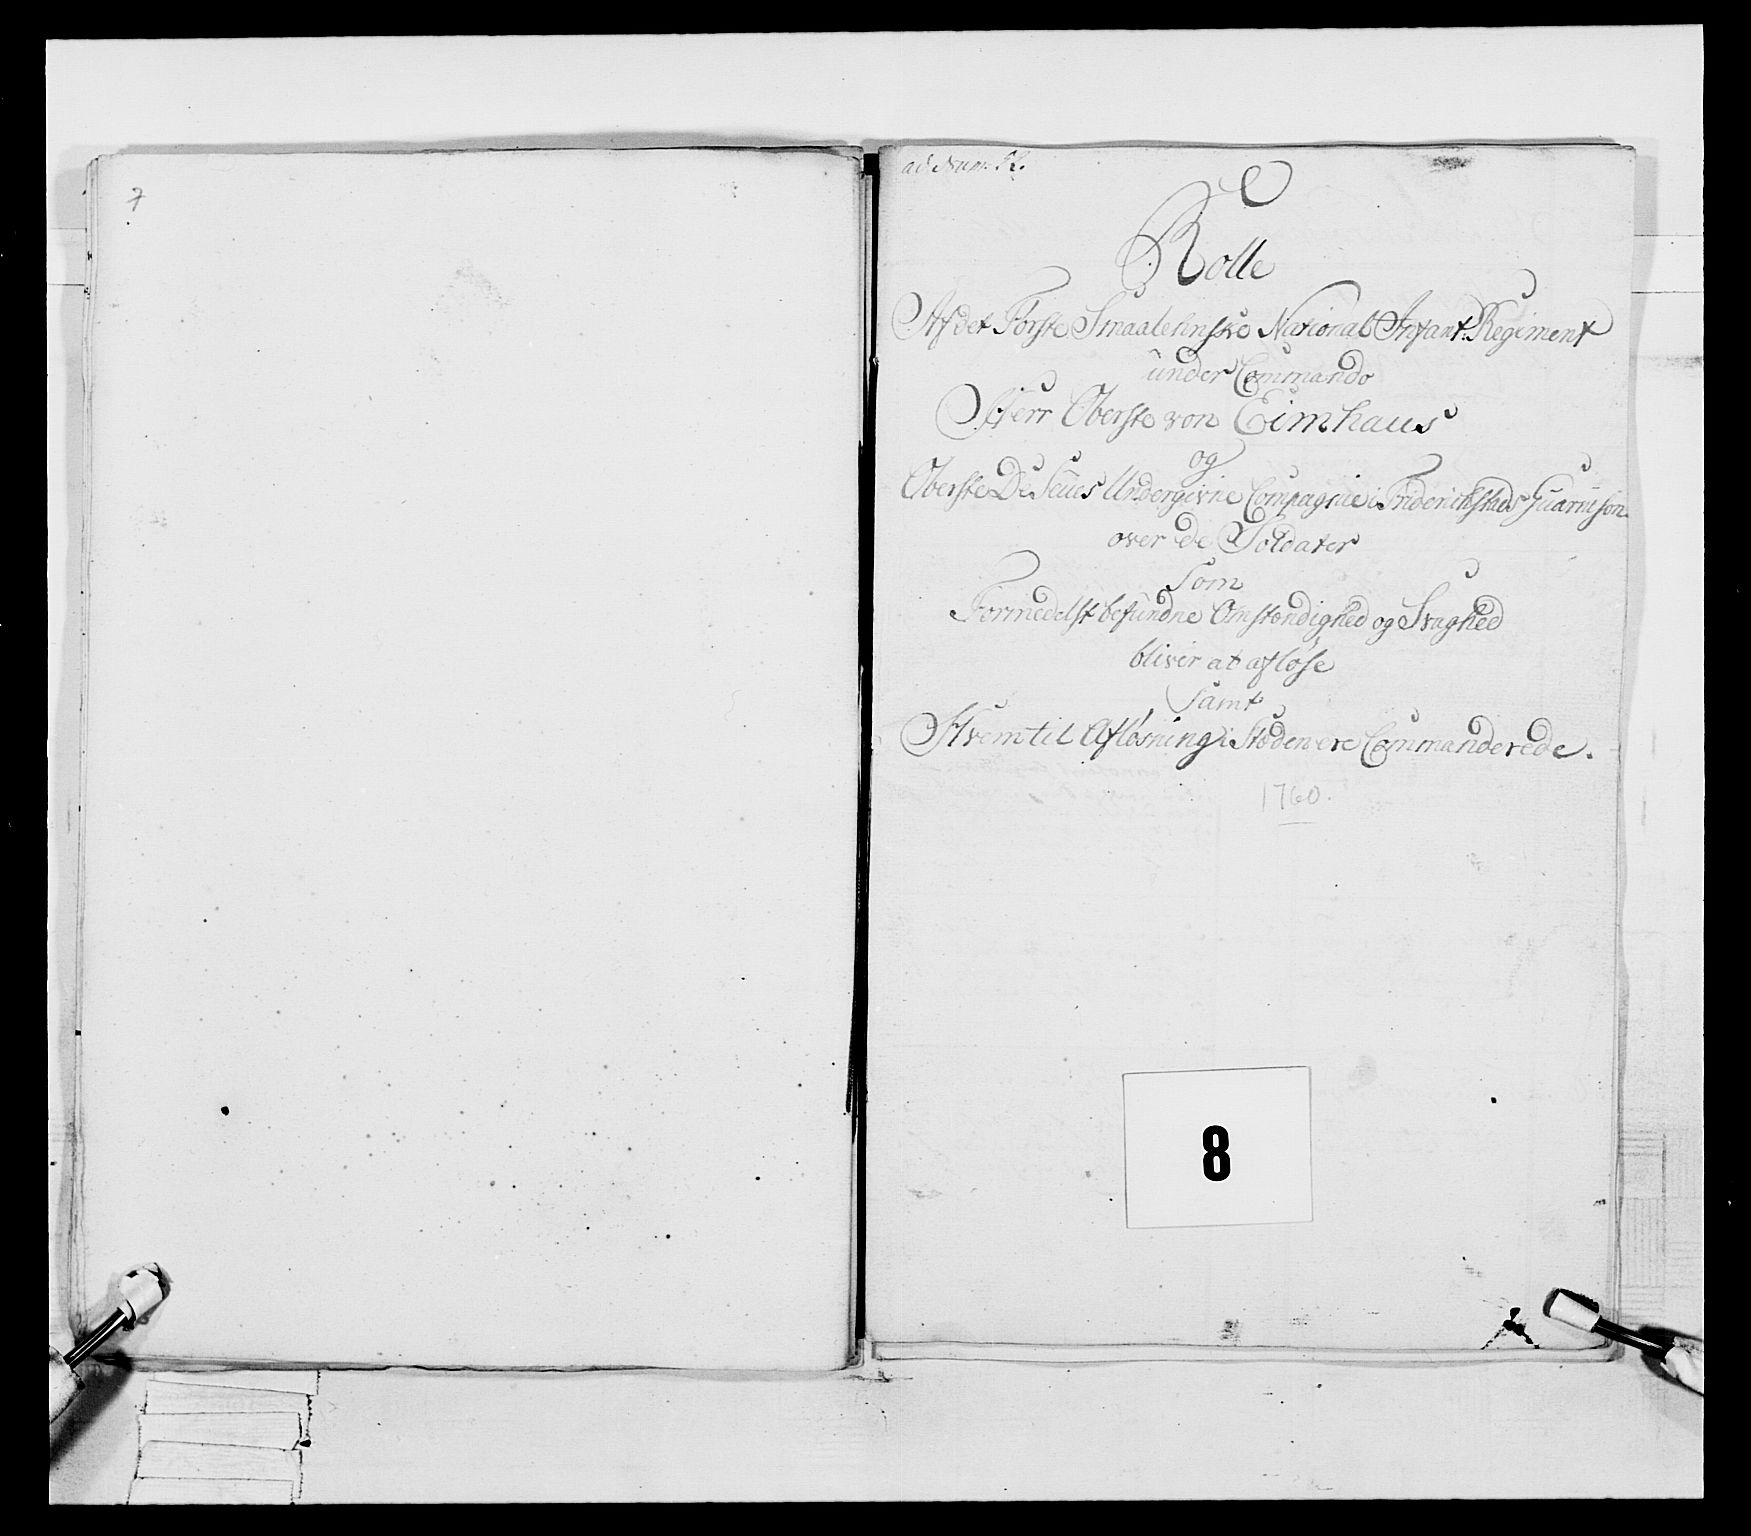 7
ad Num:
Rolle
Af det Første Smaalehnske National Infant: Regiment
under Commando
Herr Oberste von Eimhaus
og
Oberste De Seues Undergivne Compagnie i Friderichstads Guarnison
over de Soldater
Som
Formedelst befundne Omstændighed og Svaghed
bliver at afløse
Samt
Hvem til Afløsning i Stæden ere Commanderede.
1760.
8